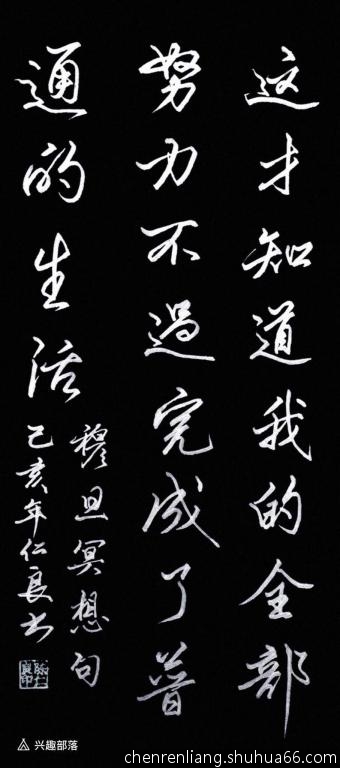 这才知道我的全部
努力不過完成了普
通的生活
穆旦冥想句
己亥年仁良书
兴趣部落
chenrenliang.shuhua66.com